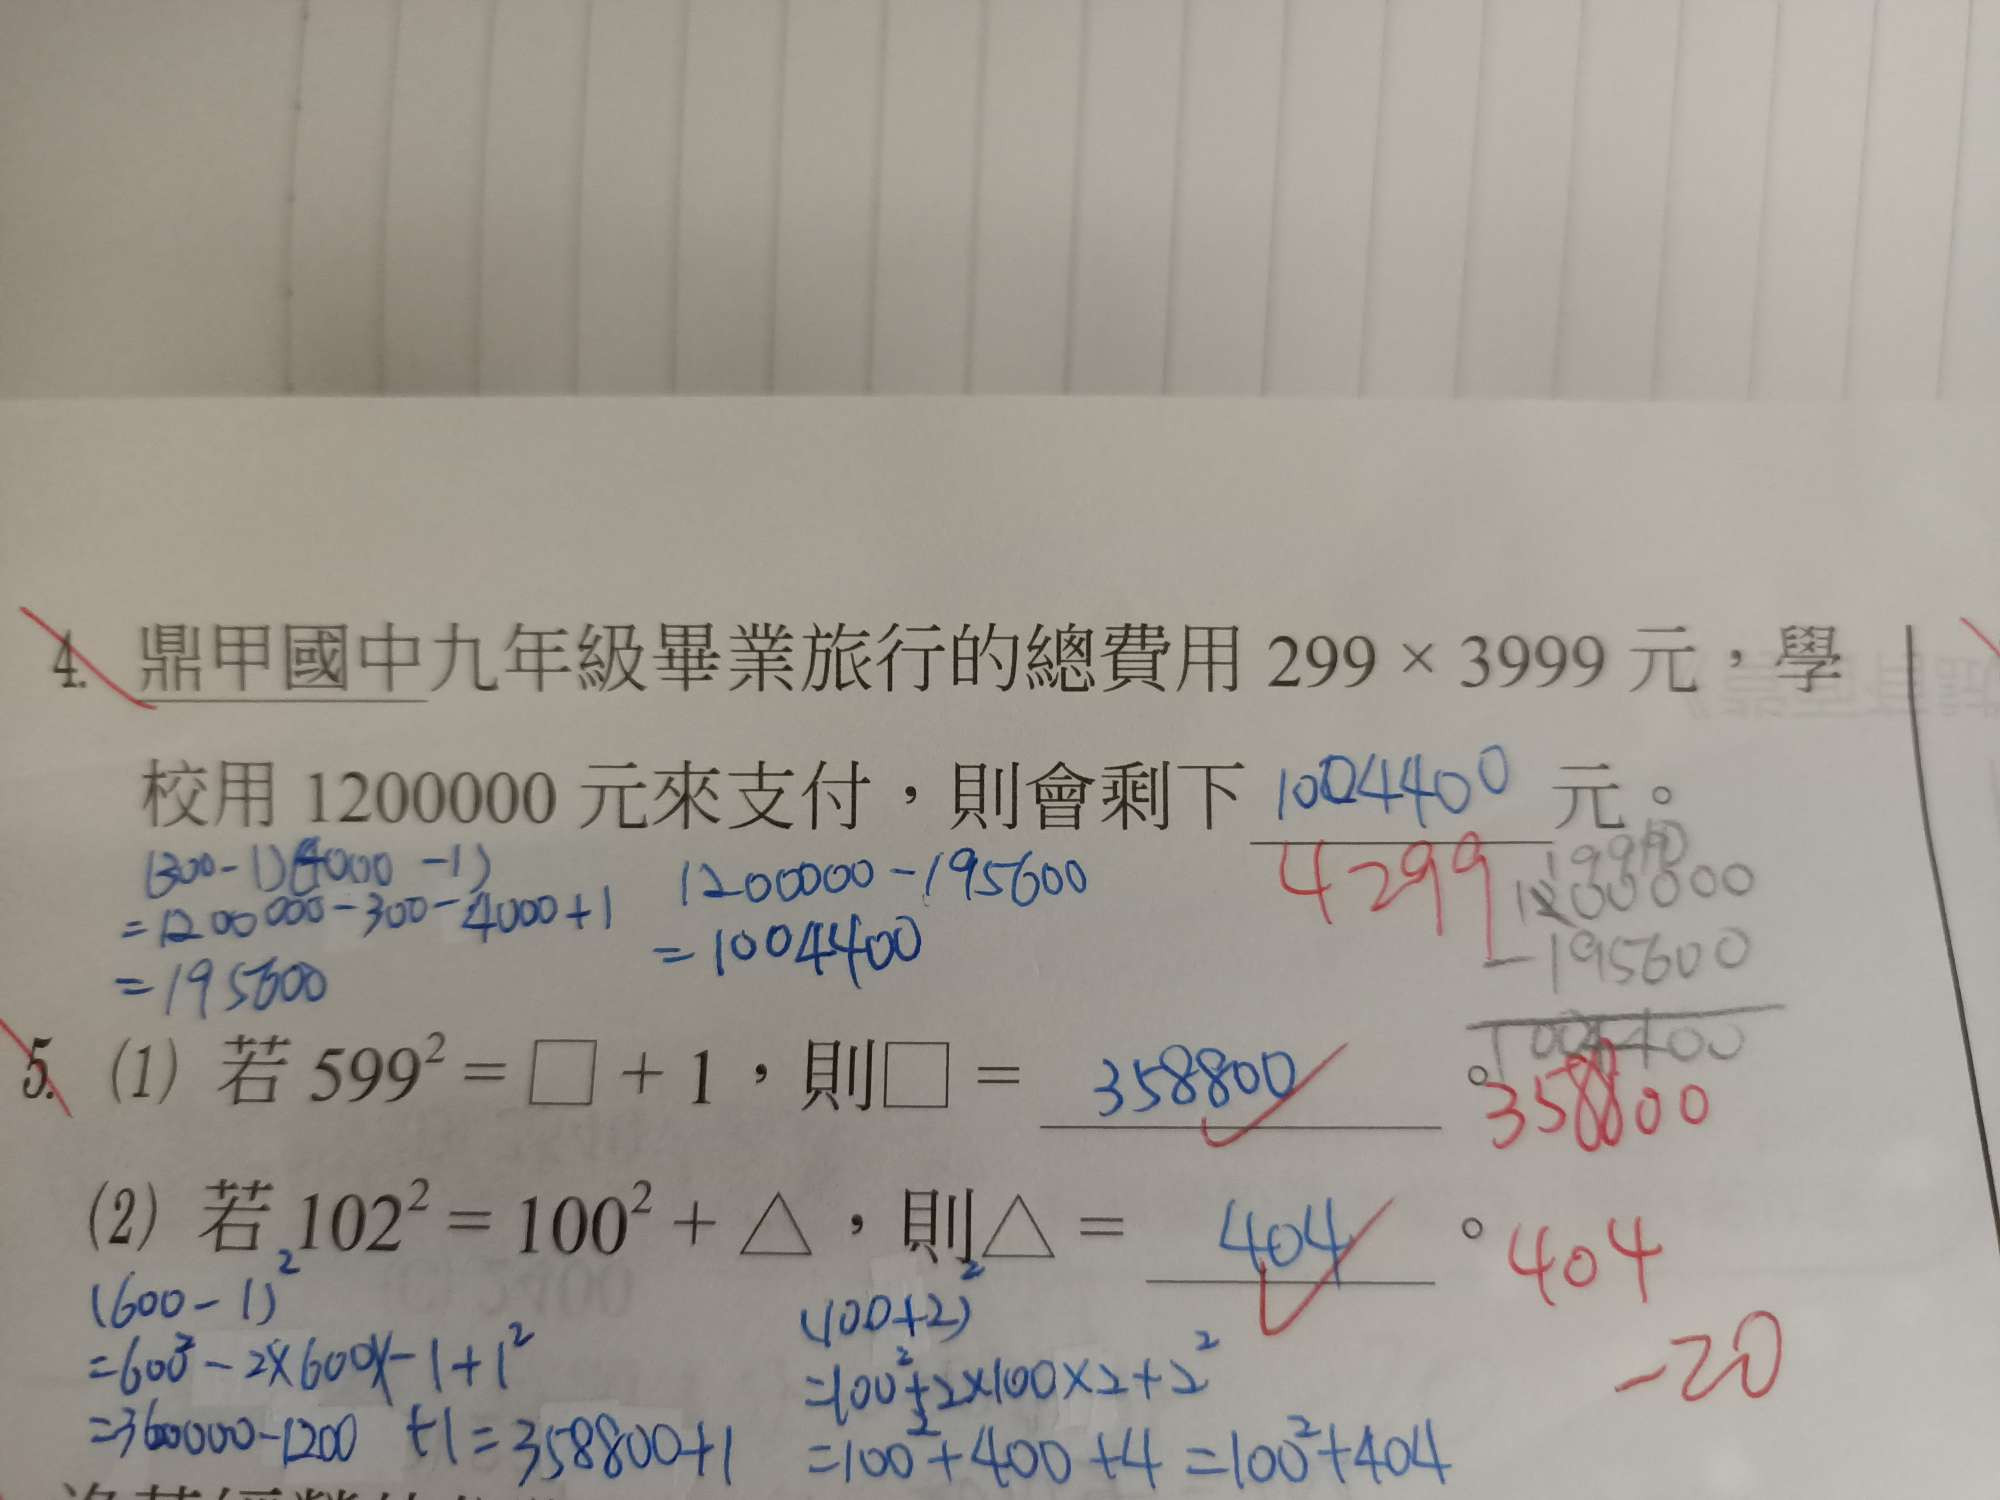 4. 鼎甲國中九年級畢業旅行的總費用 299 × 3999 元，學
校用 1200000 元來支付，則會剩下 1004400 元。
4299
(300-1)(4000-1)
=1200000-300-4000+1
=195600
1200000-195600
=1004400
1200000
-195600
1004400
5. (1) 若 599² = □ + 1，則□ = 358800 。358800
(2) 若 102² = 100² + △，則△ = 404 。404
-20
(600-1)²
=600²-2×600×-1+1²
=360000-1200 +1=358800+1
(100+2)²
=100²+2×100×2+2²
=100²+400+4=100²+404